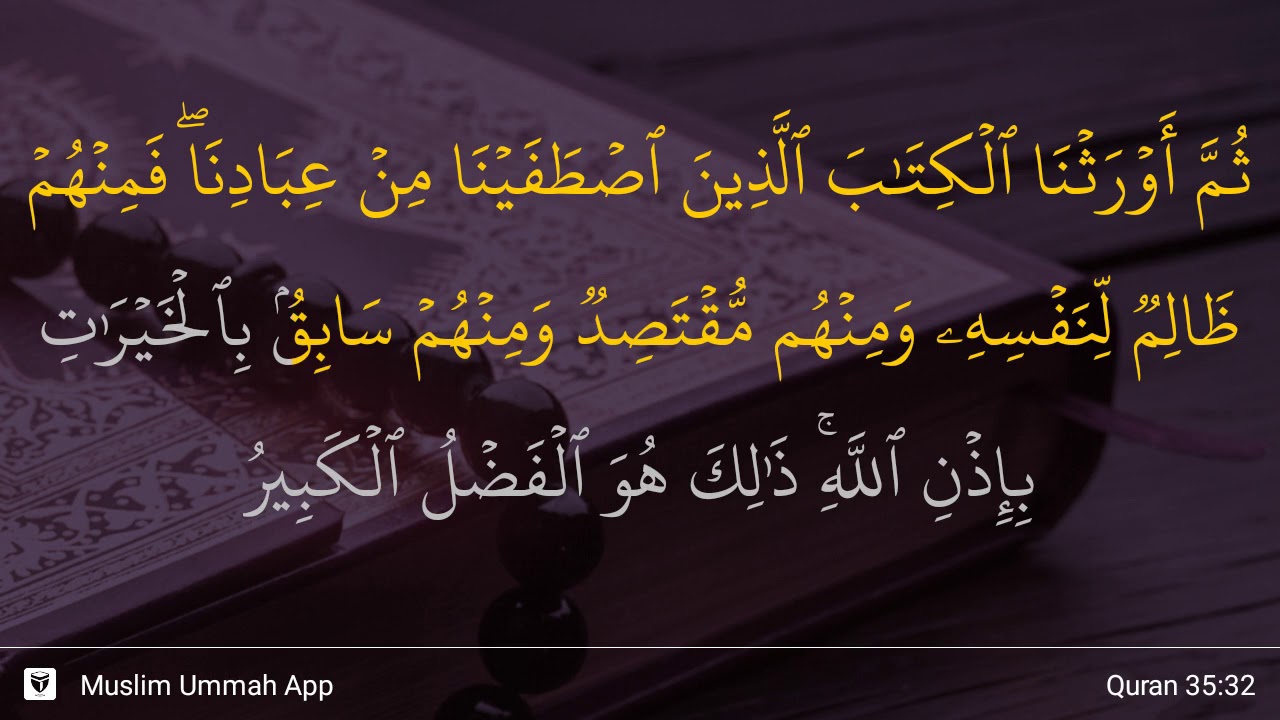 ثُمَّ أَوۡرَثۡنَا ٱلۡكِتَٰبَ ٱلَّذِينَ ٱصۡطَفَيۡنَا مِنۡ عِبَادِنَاۖ فَمِنۡهُمۡ
ظَالِمٞ لِّنَفۡسِهِۦ وَمِنۡهُم مُّقۡتَصِدٞ وَمِنۡهُمۡ سَابِقُۢ بِٱلۡخَيۡرَٰتِ
بِإِذۡنِ ٱللَّهِۚ ذَٰلِكَ هُوَ ٱلۡفَضۡلُ ٱلۡكَبِيرُ
Muslim Ummah App
Quran 35:32